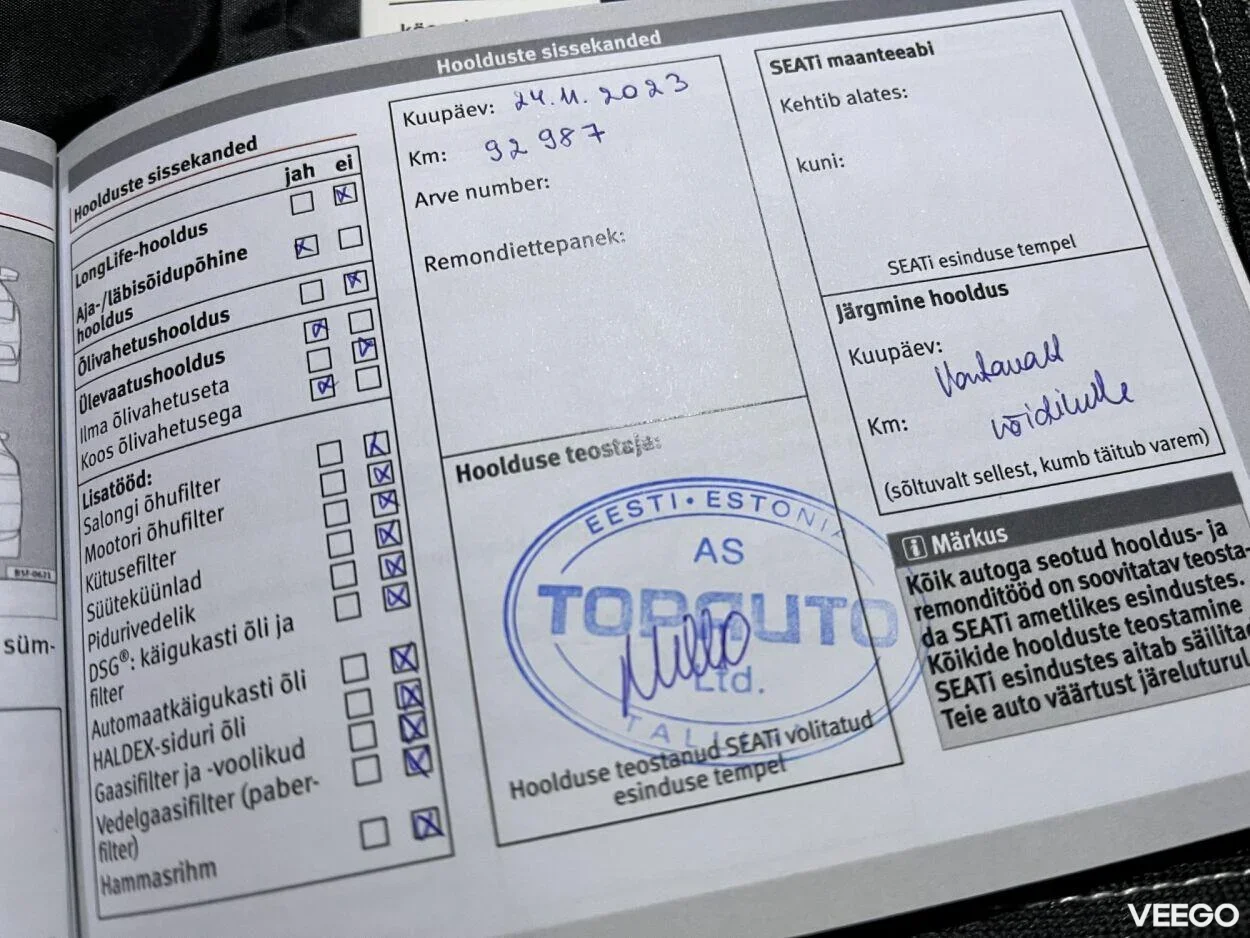 Hoolduste sissekanded
Hoolduste sissekanded
jah ei
LongLife-hooldus
Aja-/läbisõidupõhine
hooldus
Õlivahetushooldus
Ülevaatushooldus
Ilma õlivahetuseta
Koos õlivahetusega
Lisatööd:
Salongi õhufilter
Mootori õhufilter
Kütusefilter
Süüteküünlad
Pidurivedelik
DSG®: käigukasti õli ja
filter
Automaatkäigukasti õli
HALDEX-siduri õli
Gaasifilter ja -voolikud
Vedelgaasifilter (paber-
filter)
Hammasrihm
Kuupäev: 24.11.2023
Km: 92 987
Arve number:
Remondiettepanek:
Hoolduse teostaja:
EESTI • ESTONIA
AS
TOPAUTO
Ltd.
TALLI
Hoolduse teostanud SEATi volitatud
esinduse tempel
SEATi maanteeabi
Kehtib alates:
kuni:
SEATi esinduse tempel
Järgmine hooldus
Kuupäev: Vastavalt
Km: näidikule
(sõltuvalt sellest, kumb täitub varem)
i Märkus
Kõik autoga seotud hooldus- ja
remonditööd on soovitatav teosta-
da SEATi ametlikes esindustes.
Kõikide hoolduste teostamine
SEATi esindustes aitab säilita
Teie auto väärtust järelturul
süm-
BSF-0621
VEEGO